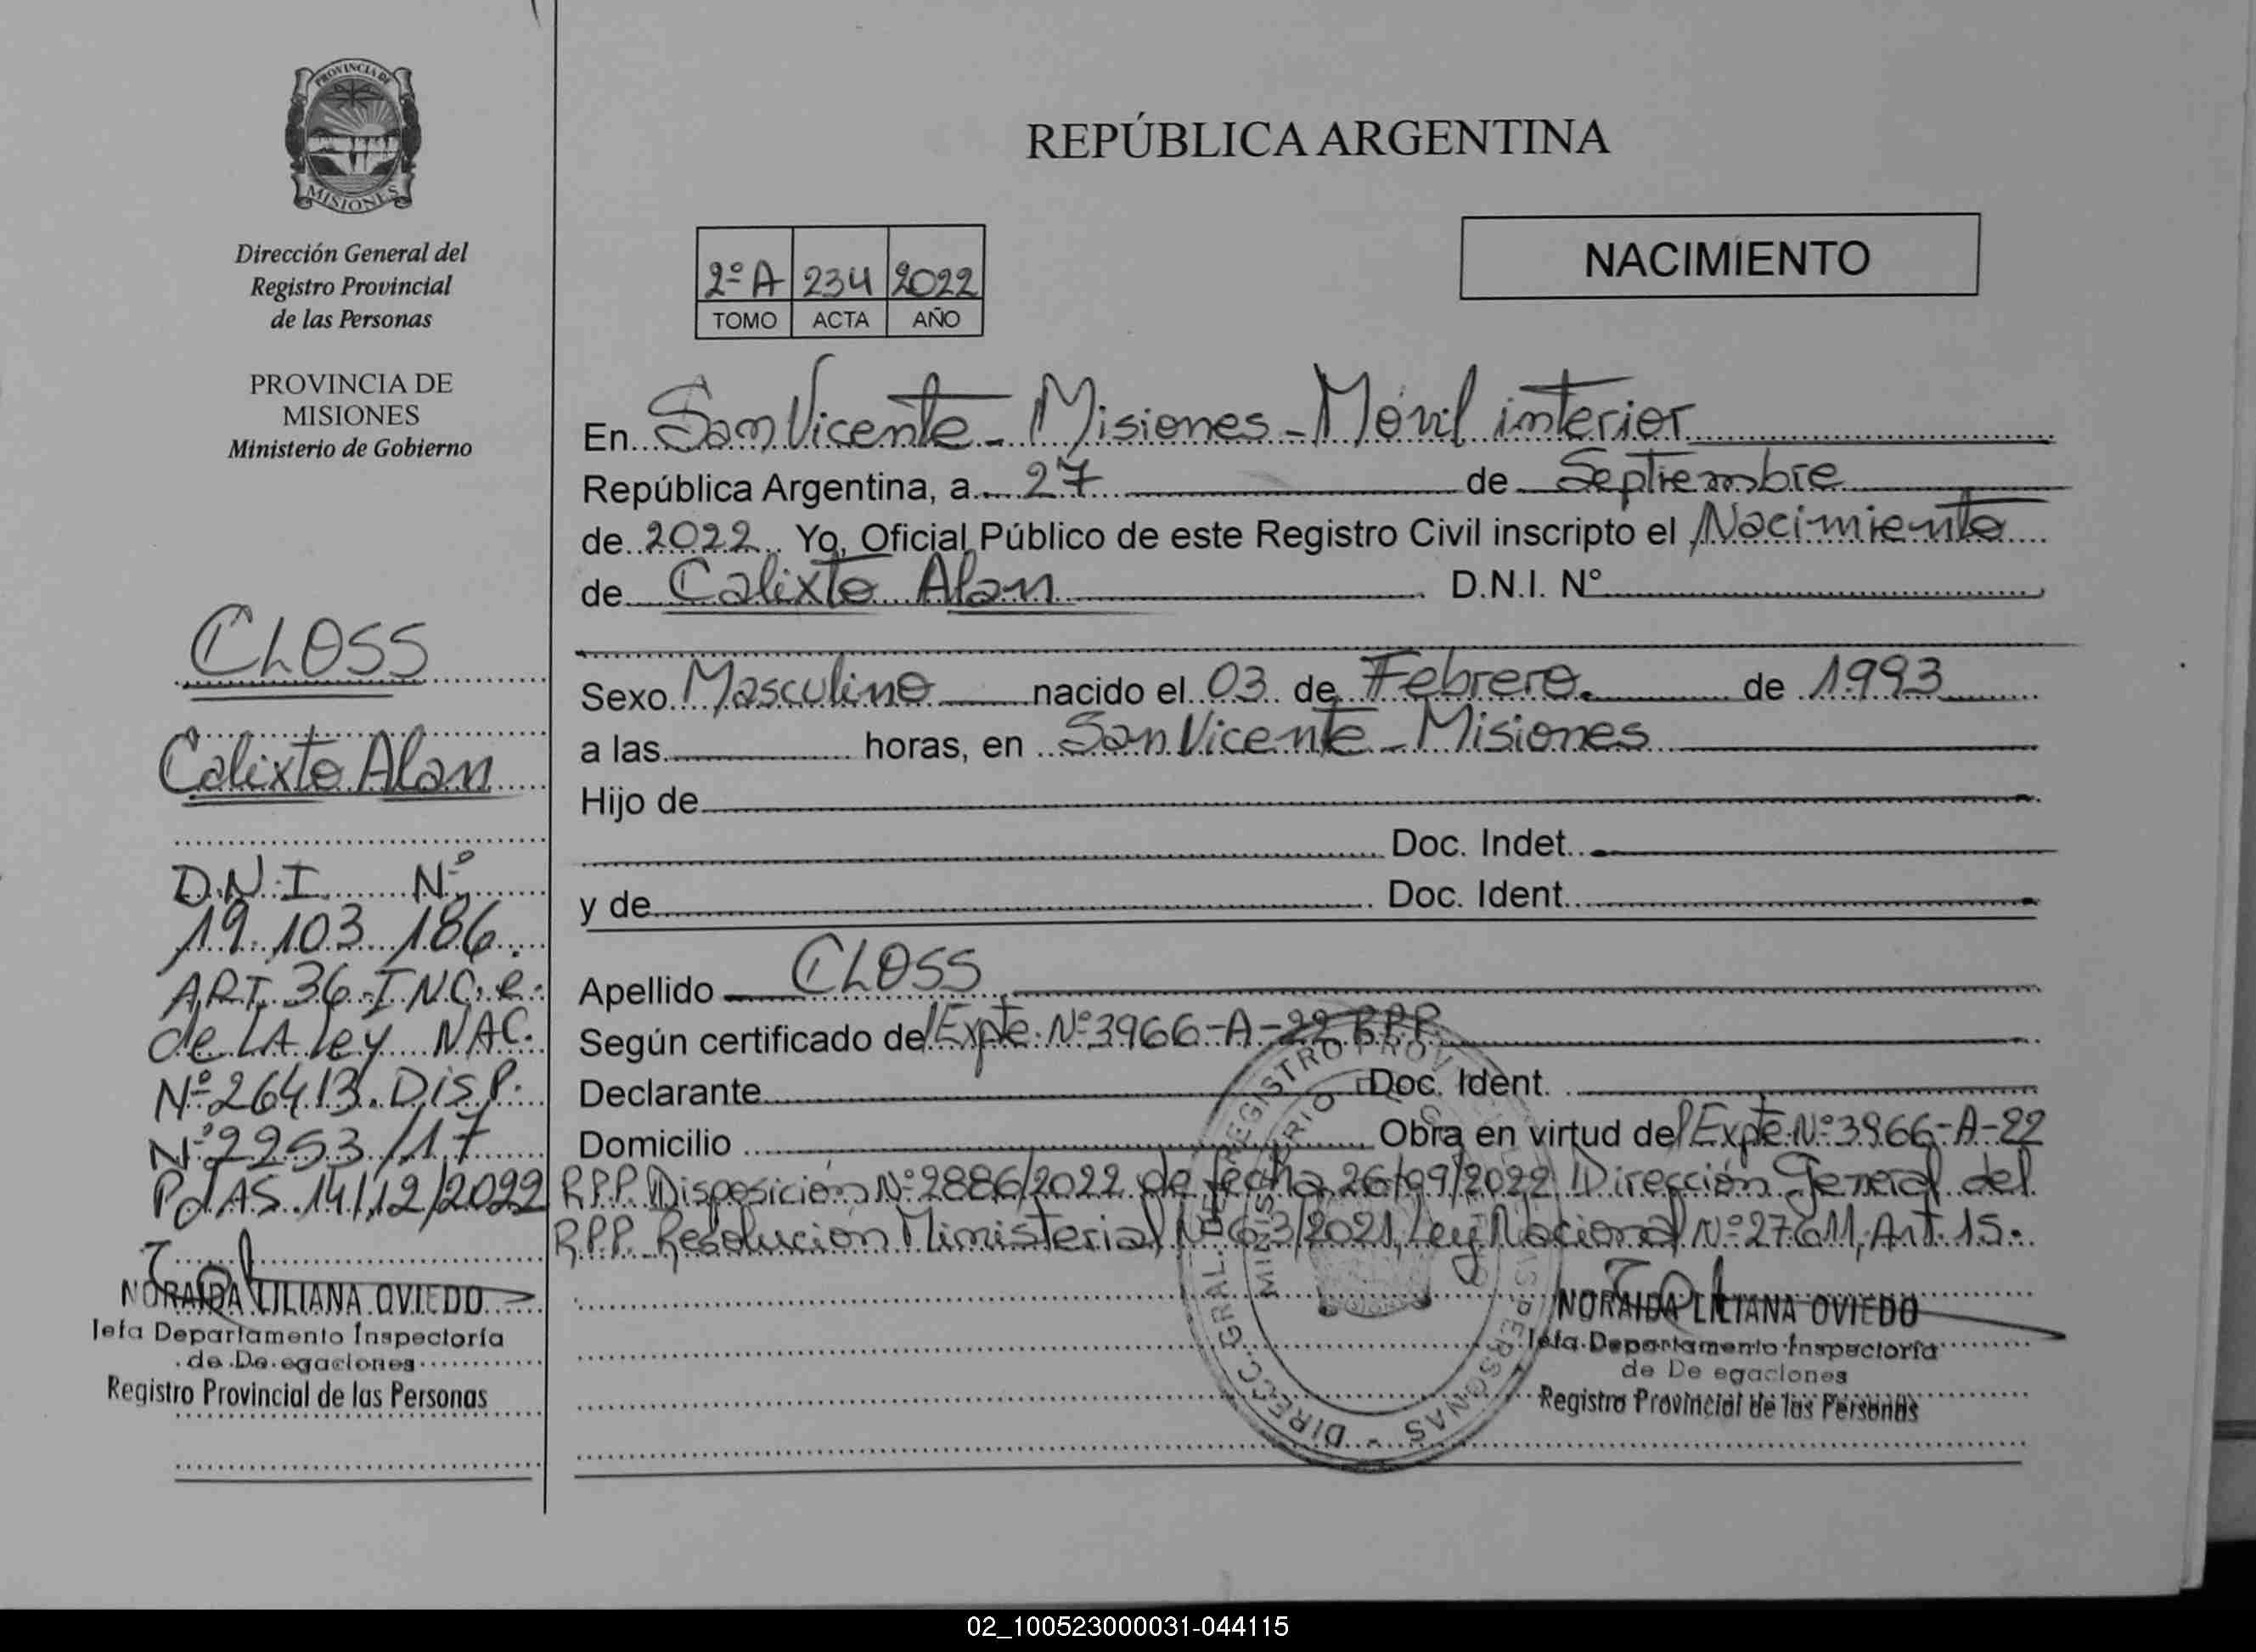 PROVINCIA DE
MISIONES
Dirección General del
Registro Provincial
de las Personas
PROVINCIA DE
MISIONES
Ministerio de Gobierno
CLOSS
Calixto Alan
D.N.I Nº
19.103.186.
ART. 36-INC. e.
de LA Ley NAC.
Nº 26413. DISP.
Nº 2253/17
PdAS. 14/12/2022
NORAIDA LILIANA OVIEDO
Jefa Departamento Inspectoría
de De egaciones
Registro Provincial de las Personas
REPÚBLICA ARGENTINA
NACIMIENTO
2º A 234 2022
TOMO ACTA AÑO
En San Vicente - Misiones - Móvil interior
República Argentina, a 27 de Septiembre
de 2022. Yo, Oficial Público de este Registro Civil inscripto el Nacimiento
de Calixto Alan D.N.I. Nº
Sexo Masculino nacido el 03 de Febrero. de 1993
a las horas, en San Vicente - Misiones
Hijo de
Doc. Indet.
y de Doc. Ident.
Apellido CLOSS
Según certificado del Expte. Nº 3966-A-22 R.P.P.
Declarante Doc. Ident.
Domicilio Obra en virtud del Expte. Nº 3966-A-22
R.P.P. Disposición Nº 2886/2022 de fecha 26/09/2022 Dirección General del
R.P.P. Resolución Ministerial Nº 63/2021, Ley Nacional Nº 27611, Art. 15.
NORAIDA LILIANA OVIEDO
Jefa Departamento Inspectoría
de De egaciones
Registro Provincial de las Personas
DIRECC. GRAL. REGISTRO PERSONAS
02_100523000031-044115